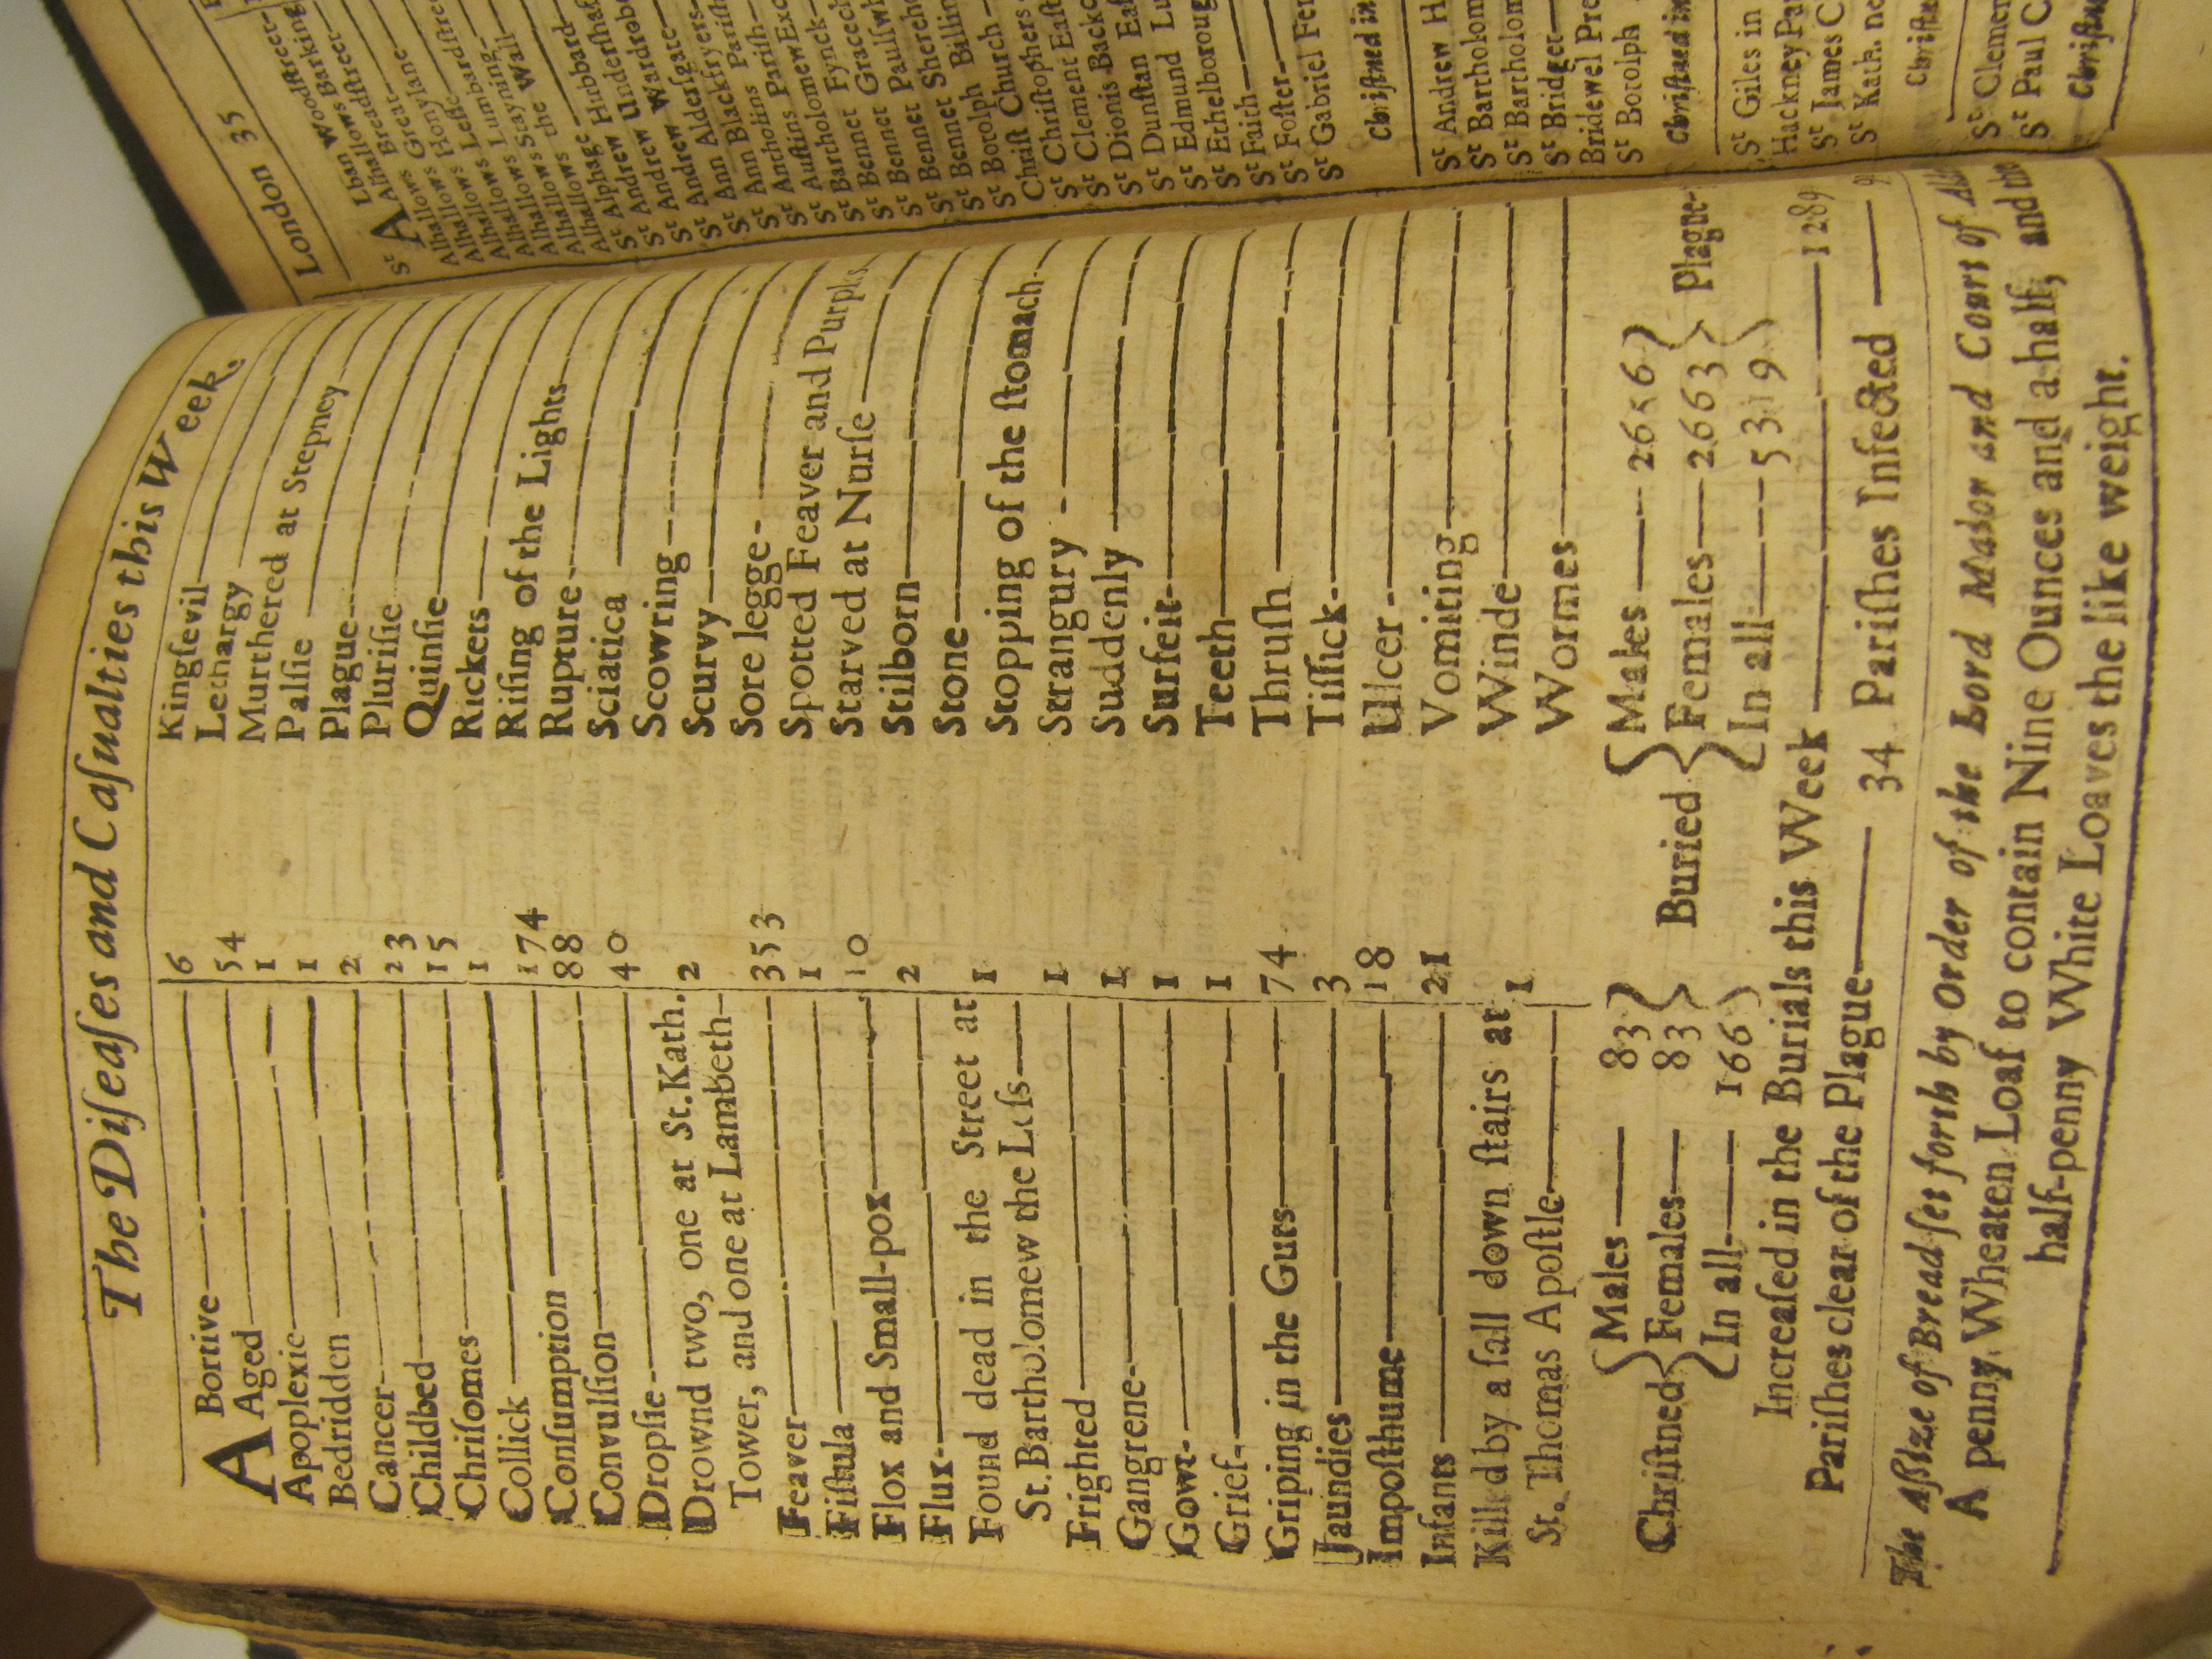 The Diſeaſes and Caſualties this Week.
ABortive 6
Aged 54
Apoplexie 1
Bedridden 1
Cancer 2
Childbed 23
Chriſomes 15
Collick 1
Conſumption 174
Convulſion 88
Dropſie 40
Drownd two, one at St. Kath. Tower, and one at Lambeth 2
Feaver 353
Fiſtula 1
Flox and Small-pox 10
Flux 2
Found dead in the Street at 1
St. Bartholomew the Leſs
Frighted 1
Gangrene 1
Gowt 1
Grief 1
Griping in the Guts 74
Jaundies 3
Impoſthume 18
Infants 21
Killed by a fall down ſtairs at 1
St. Thomas Apoſtle
Kingſevil
Lethargy
Murthered at Stepney
Palſie
Plague
Pluriſie
Quinſie
Rickets
Riſing of the Lights
Rupture
Sciatica
Scowring
Scurvy
Sore legge
Spotted Feaver and Purples
Starved at Nurſe
Stilborn
Stone
Stopping of the ſtomach
Strangury
Suddenly
Surfeit
Teeth
Thruſh
Tiſſick
Ulcer
Vomiting
Winde
Wormes
Chriſtned { Males 83 Females 83 In all 166 }
Buried { Males 2656 Females 2663 In all 5319 } Plague
Increaſed in the Burials this Week 1289
Pariſhes clear of the Plague 34 Pariſhes Infected
The Aſsize of Bread ſet forth by Order of the Lord Major and Court of
A penny Wheaten Loaf to contain Nine Ounces and a half, and
half-penny White Loaves the like weight.
London 35
St ALban Woodſtreet
Alhallows Barking
Alhallows Breadſtreet
Alhallows Great
Alhallows Honylane
Alhallows Leſſe
Alhallows Lumbardſtreet
Alhallows Stayning
Alhallows the Wall
Alphage
St Andrew Hubbard
St Andrew Underſhaft
St Andrew Wardrobe
St Ann Alderſgate
St Ann Blackfryers
St Antholins Pariſh
St Auſtins Pariſh
St Bartholomew Exc
St Bennet Fynck
St Bennet Gracech
St Bennet Paulſwh
St Bennet Sherehog
St Botolph Billin
Chriſt Church
St Chriſtophers
St Clement Eaſt
St Dionis Back
St Dunſtan Eaſt
St Edmund Lu
St Ethelboroug
St Faith
St Foſter
St Gabriel Fen
Chriſtned in
St Andrew H
St Bartholom
St Bartholom
St Bridget
Bridewel Pre
St Botolph
Chriſtned in
St Giles in
Hackney Pa
St James C
St Kath. ne
Chriſtn
St Clemen
St Paul C
Chriſtn